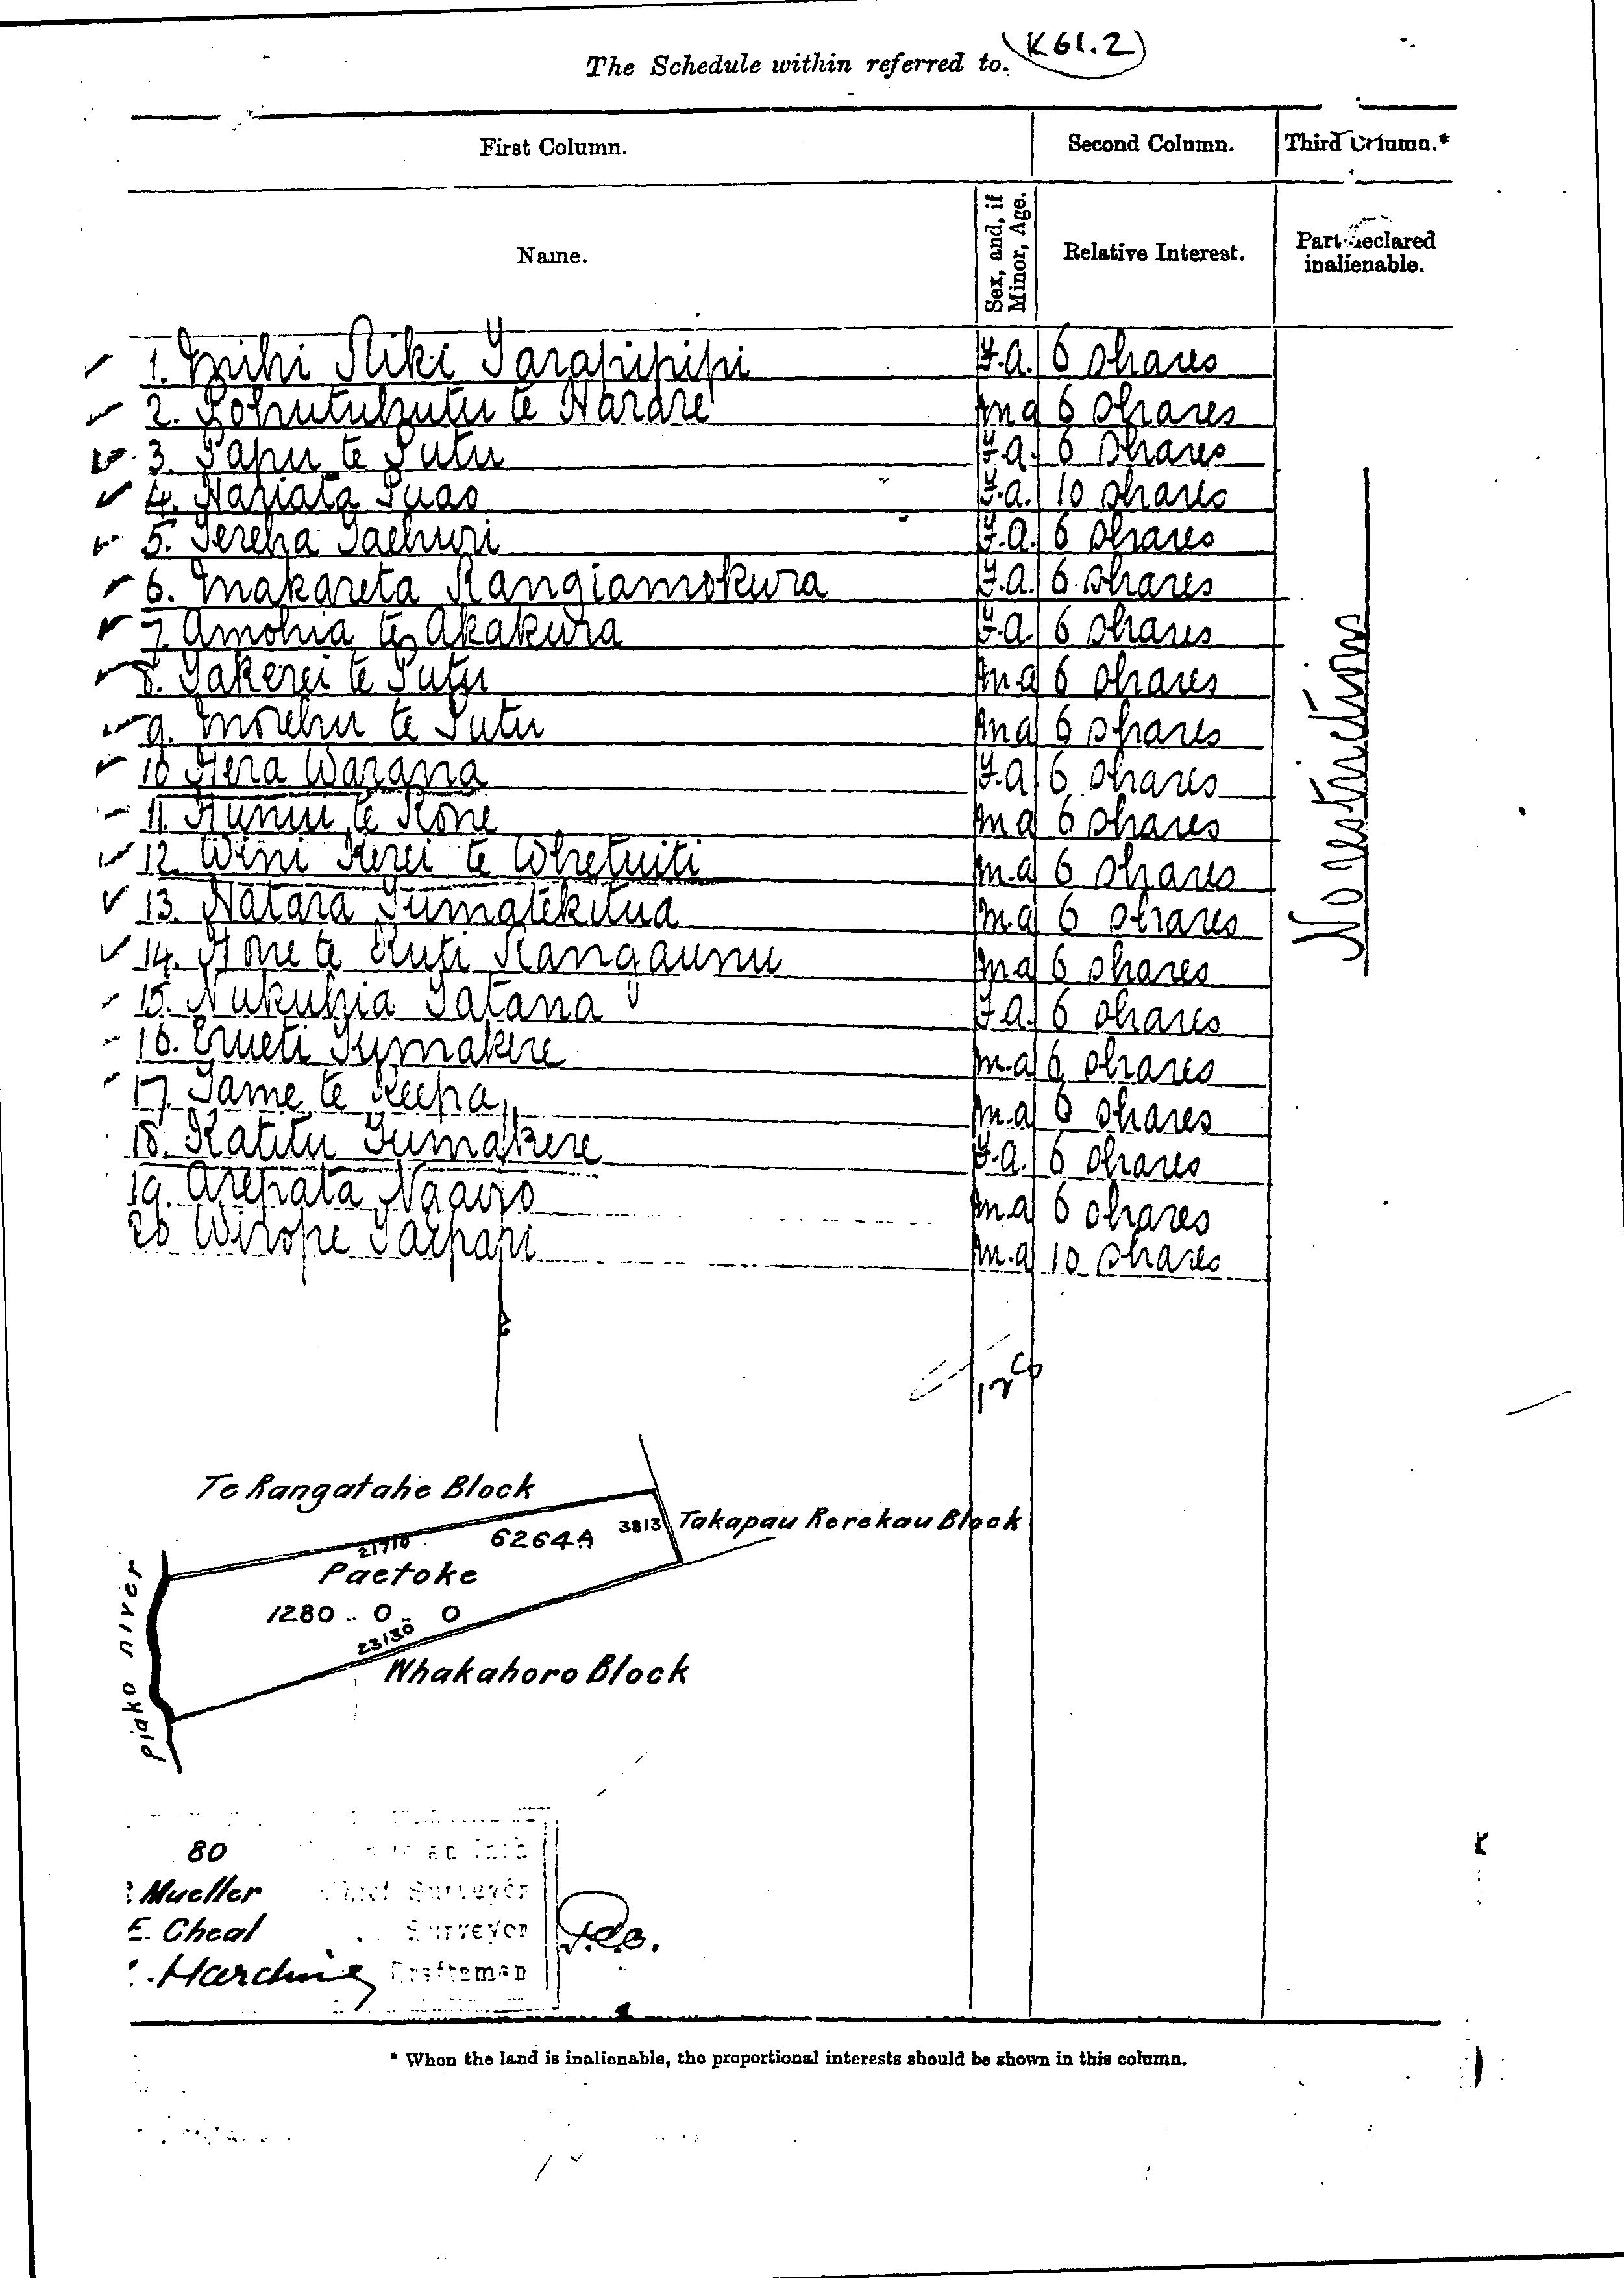 The Schedule within referred to. K61.2
First Column. Second Column. Third Column.*
Name. Sex, and, if Minor, Age. Relative Interest. Part declared inalienable.
1. Mihi Riki Tarapipipi F.a. 6 shares
2. Pohutuhutu te Narare m a 6 shares
3. Papu te Putu F.a. 6 shares
4. Hariata Puao F.a. 10 shares
5. Tereha Taehuri F.a. 6 shares
6. Makareta Rangiamokura F.a. 6 shares
7. Amohia te Akakura F.a. 6 shares
8. Takerei te Putu m.a 6 shares
9. Morehu te Putu m a 6 shares
10 Hera Warana F.a. 6 shares
11. Hunui te Kone m a 6 shares
12. Wini Kerei te Whetuiti m.a 6 shares
13. Natara Tumatekitua m.a 6 shares
14. Hone te Ruti Rangaunu m a 6 shares
15. Nukuhia Tatana F.a. 6 shares
16. Erueti Tumakere m.a 6 shares
17. Tame te Keepa m.a 6 shares
18. Katitu Tumakere F.a. 6 shares
19. Arepata Ngaviro m.a 6 shares
20 Wirope Taipari m.a 10 shares
No restrictions
Te Rangatahe Block
21710 6264A 3813 Takapau Rerekau Block
Paetoke
1280 .. 0 .. 0
23130
Whakahoro Block
piako river
80 an Inch
Mueller Chief Surveyor
E. Cheal Surveyor
Harding Draftsman
* When the land is inalienable, the proportional interests should be shown in this column.